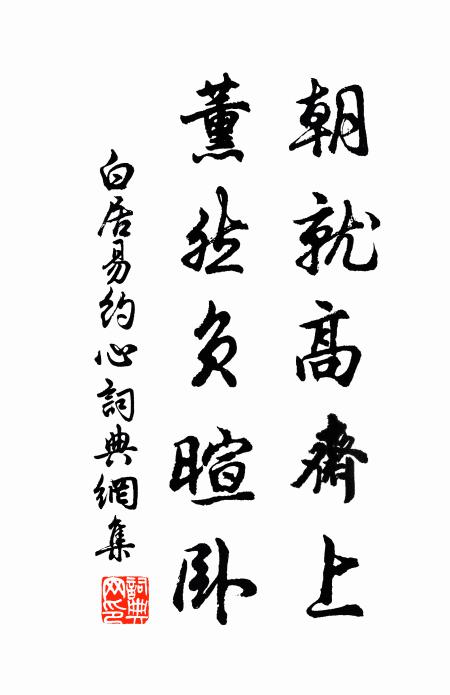 朝就高齋上
薰然負暄臥
白居易約心詞典網集
詞典
网印